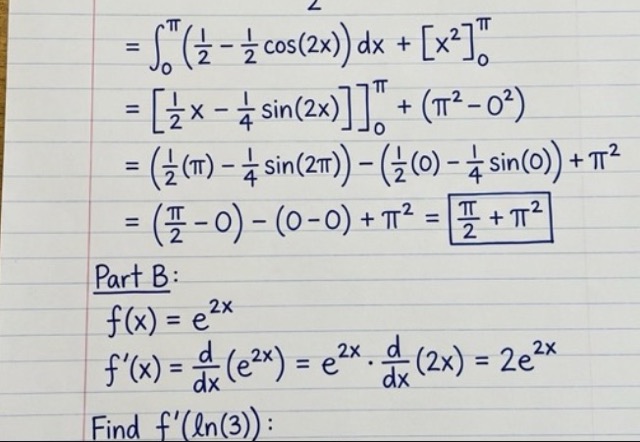 2
= ∫₀^π (1/2 - 1/2 cos(2x)) dx + [x²]₀^π
= [1/2 x - 1/4 sin(2x)]]₀^π + (π² - 0²)
= (1/2(π) - 1/4 sin(2π)) - (1/2(0) - 1/4 sin(0)) + π²
= (π/2 - 0) - (0 - 0) + π² = π/2 + π²
Part B:
f(x) = e^{2x}
f'(x) = d/dx (e^{2x}) = e^{2x} · d/dx (2x) = 2e^{2x}
Find f'(ln(3)):